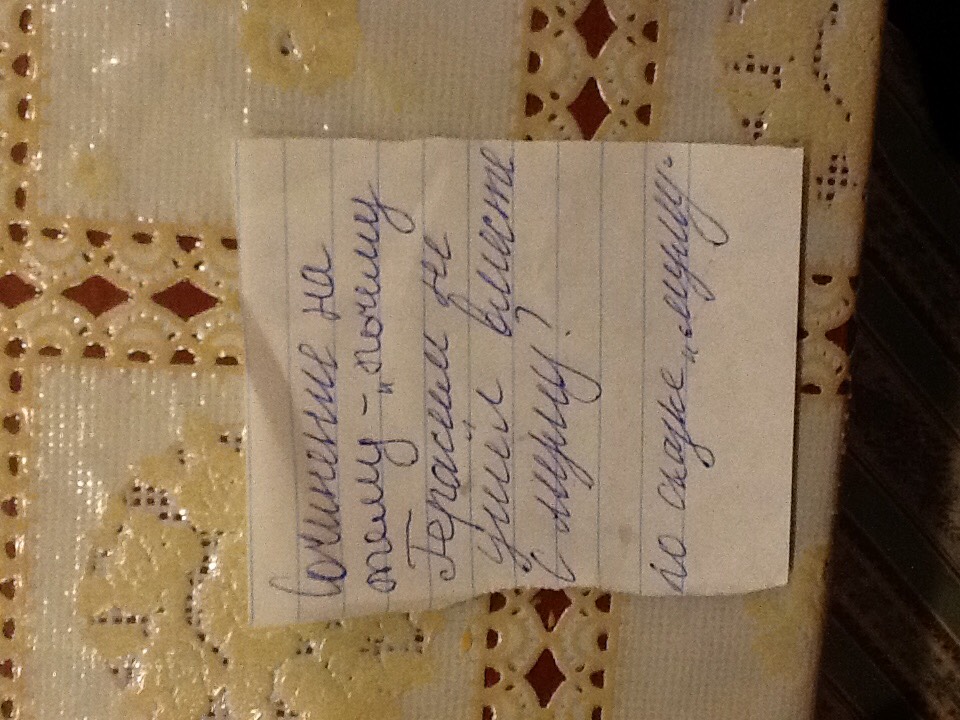 Сочинение на
тему - „почему
Герасим не
ушёл вместе
с муму?
по сказке „муму"